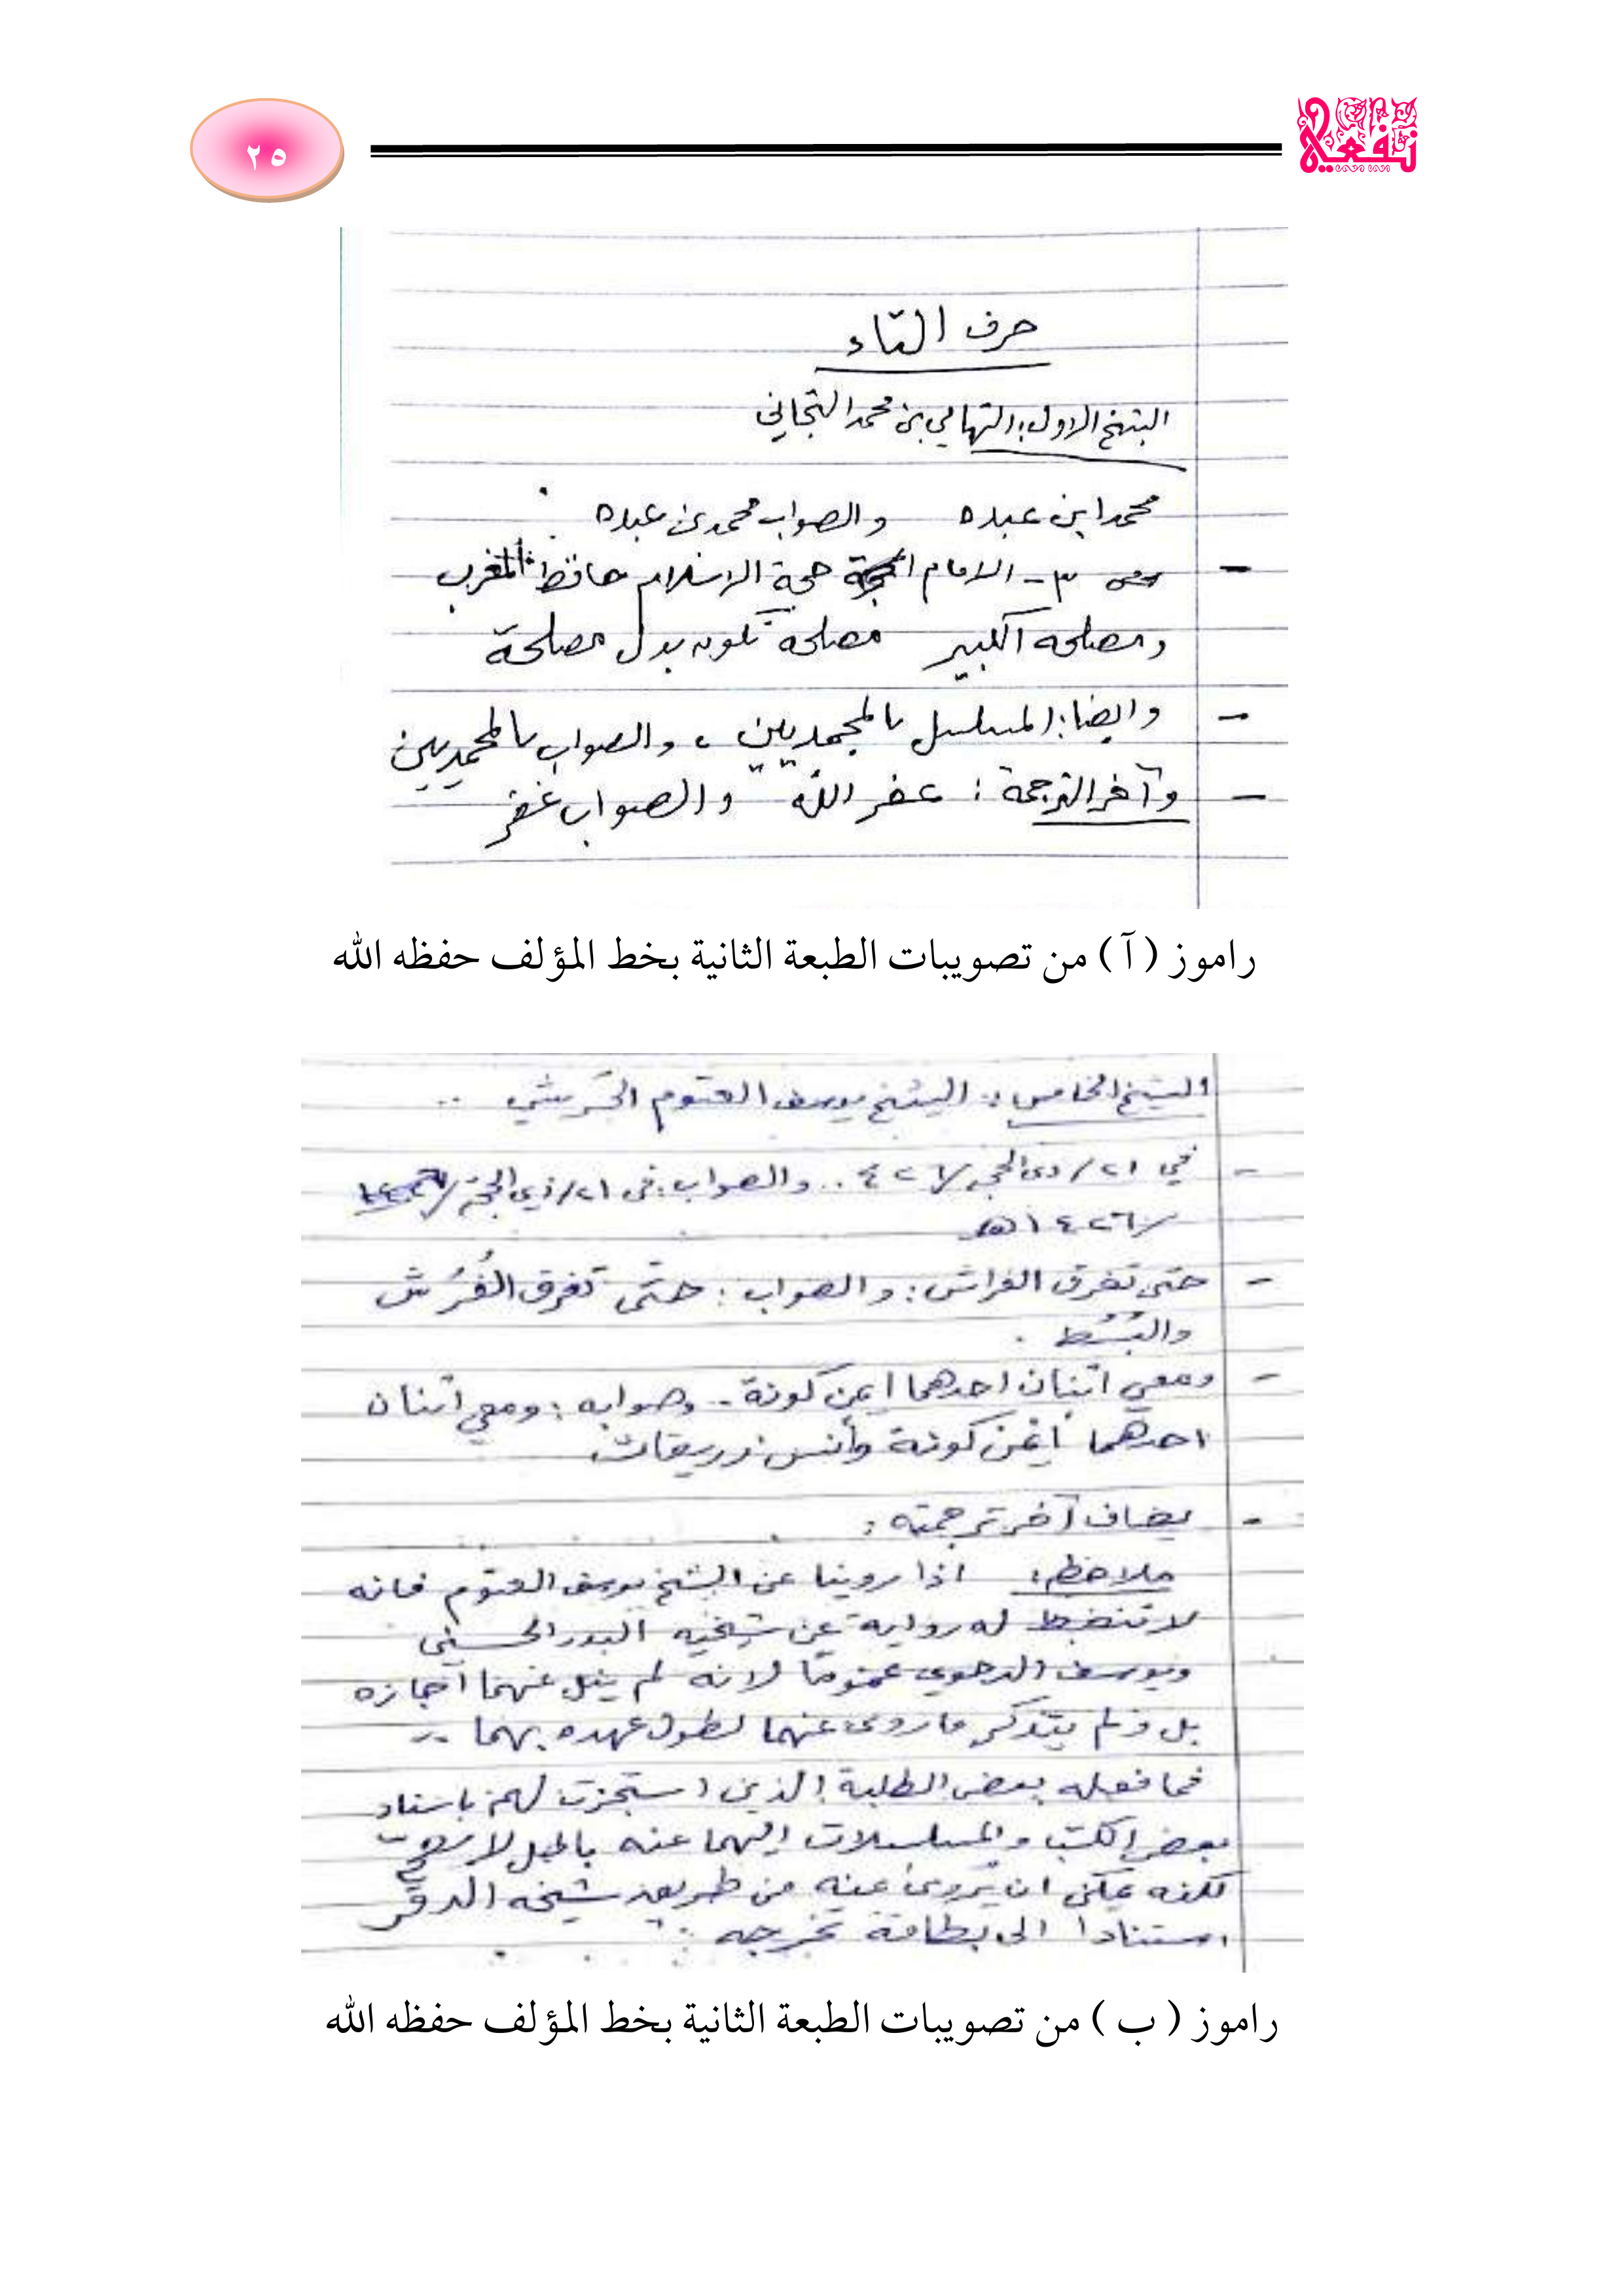 نفعية
٢٥
حرف التاء
الشيخ الاول: التهامي بن محمد التجاني
محمد ابن عبده والصواب محمد بن عبده
- ص ٣ - الامام حجة الاسلام حافظ المغرب
ومصلحه الكبير مصلحه تكون بدل مصلحة
- وايضا: المسلسل بالمجمديين، والصواب بالمحمديين
- وآخر الترجمة: عفر الله والصواب غفر
راموز ( آ ) من تصويبات الطبعة الثانية بخط المؤلف حفظه الله
الشيخ الخامس: الشيخ يوسف العتوم الجَرشي ..
- في ٢١/ذي الحجة/٤٢٦ .. والصواب: في ٢١/ذي الحجة/
/١٤٢٦هـ
- حتى تفرق الفراش: والصواب: حتى تفرق الفُرُش
والبُسُط .
- ومعي اثنان احدهما ايمن كونة .. وصوابه: ومعي اثنان
احدهما أيمن كونة وأنس زريقات
- يضاف آخر ترجمته:
ملاحظه: اذا روينا عن الشيخ يوسف العتوم فانه
لا تنضبط له رواية عن شيخيه البدر الحسني
ويوسف الدجوي عمومًا لانه لم ينل عنهما اجازه
بل ولم يتذكر ما روى عنهما لطول عهده بهما ..
فما فعله بعض الطلبة الذين استجزت لهم باسناد
بعض الكتب والمسلسلات اليهما عنه لا يصح
لكنه يمكن ان يُروى عنه من طريق شيخه الدقر
استنادا الى بطاقة تخرجه .
راموز ( ب ) من تصويبات الطبعة الثانية بخط المؤلف حفظه الله